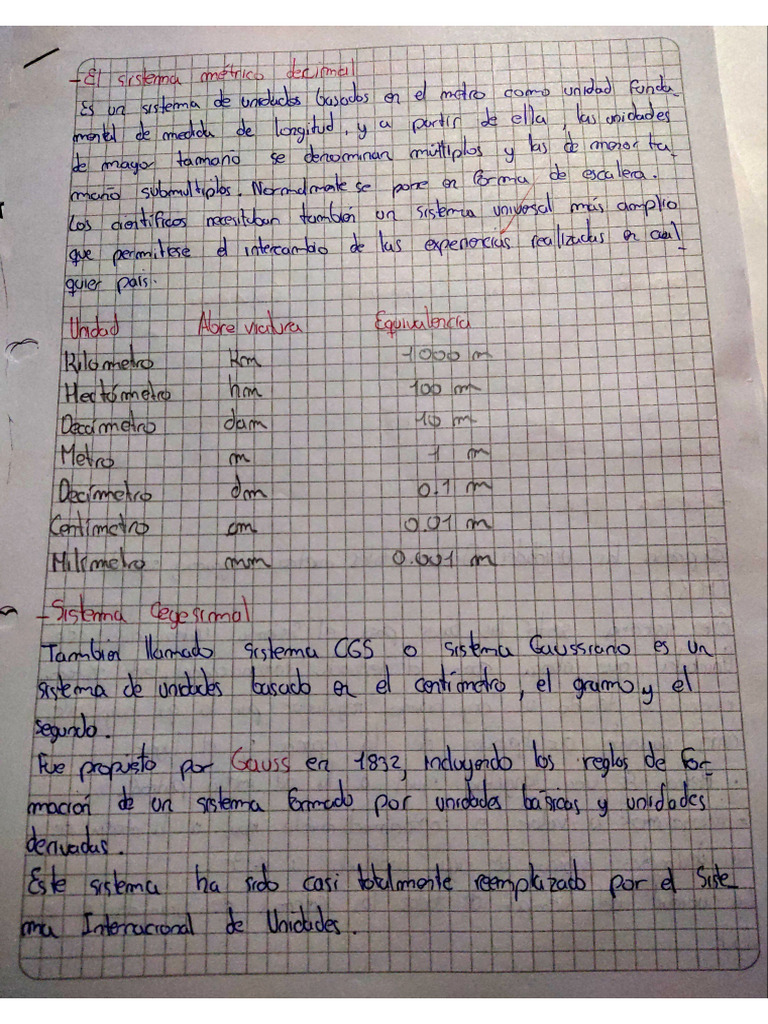 - El sistema métrico decimal
Es un sistema de unidades basados en el metro como unidad funda-
mental de medida de longitud, y a partir de ella, las unidades
de mayor tamaño se denominan múltiplos y las de menor ta-
maño submultiplos. Normalmate se pone en forma de escalera.
Los científicos necesitaban también un sistema universal más amplio
que permitiese el intercambio de las experiencias realizadas en cual-
quier país.
Unidad Abreviatura Equivalencia
Kilómetro Km 1000 m
Hectómetro hm 100 m
Decámetro dam 10 m
Metro m 1 m
Decímetro dm 0.1 m
Centímetro cm 0.01 m
Milímetro mm 0.001 m
- Sistema Cegesimal
También llamado sistema CGS o sistema Gaussiano es un
sistema de unidades basado en el centímetro, el gramo y el
segundo.
Fue propuesto por Gauss en 1832, incluyendo los reglos de for-
mación de un sistema formado por unidades básicas y unidades
derivadas.
Este sistema ha sido casi totalmente reemplazado por el Siste
ma Internacional de Unidades.